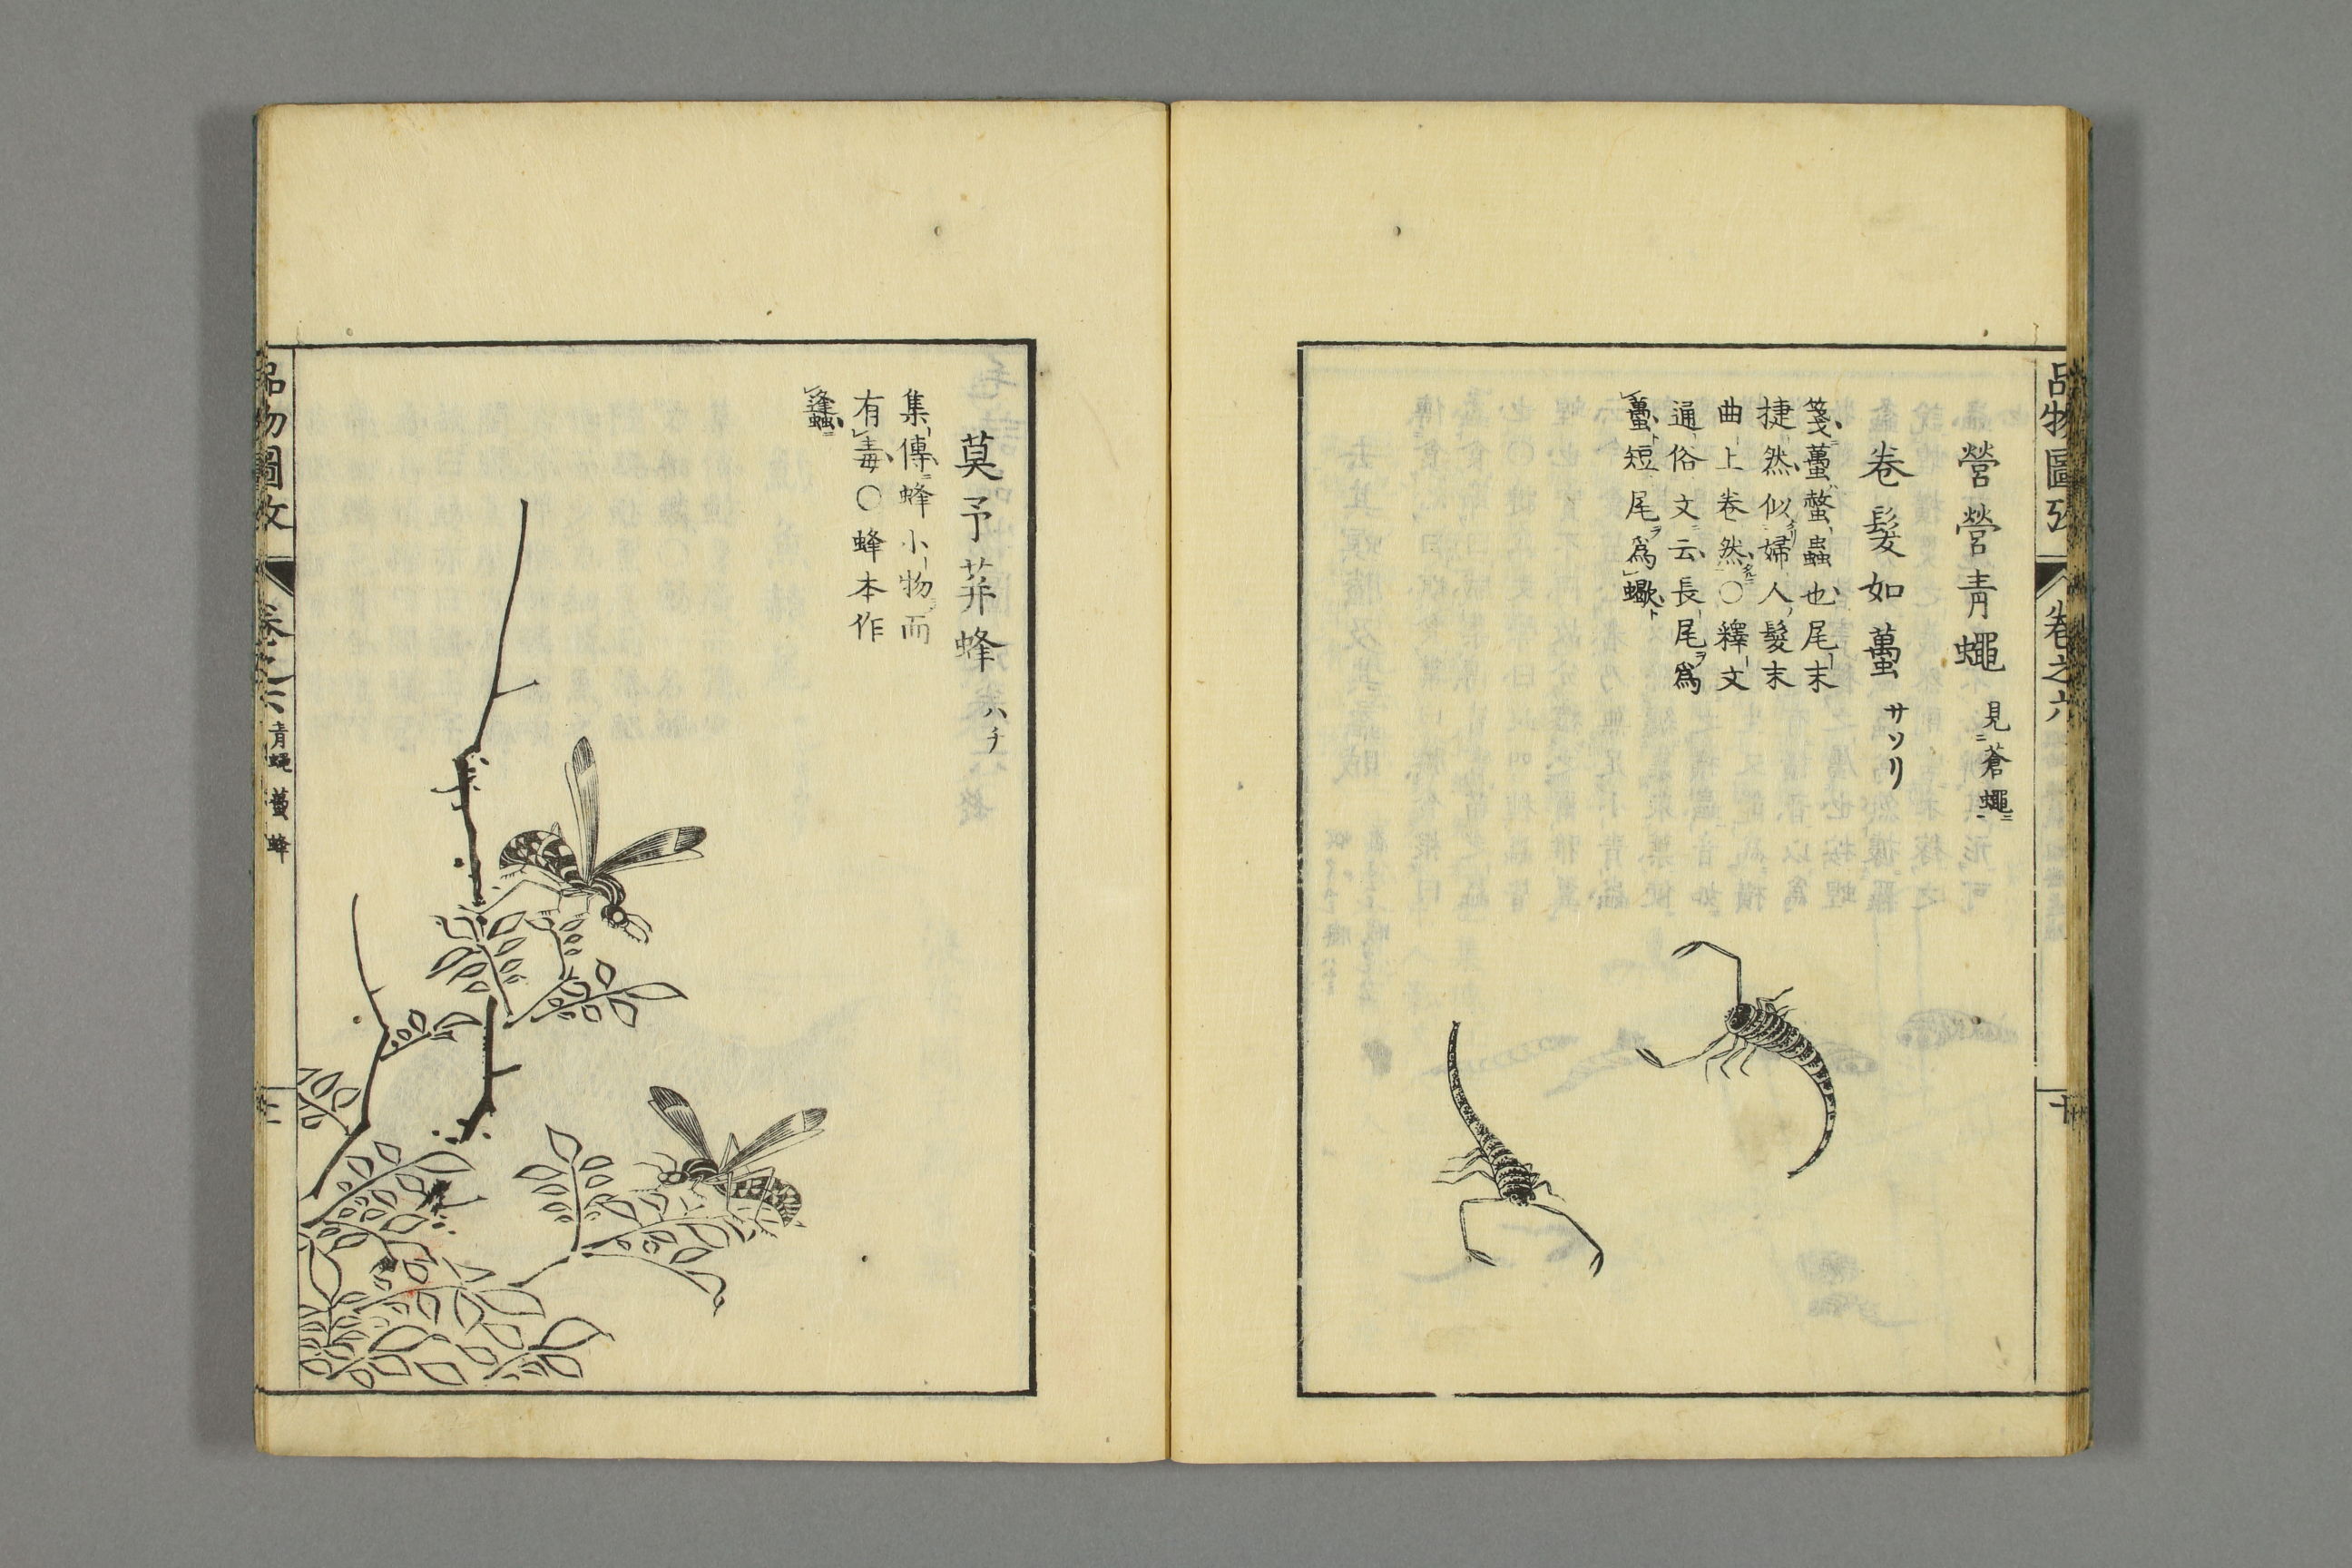 品物圖攷 卷之六 十
營營青蠅 見蒼蠅
卷髮如蠆 サソリ
箋蠆螫蟲也尾末
捷然似婦人髮末
曲上卷然〇釋文
通俗文云長尾爲
蠆短尾爲蠍
莫予荓蜂 ハチ
集傳蜂小物而
有毒〇蜂本作
䗬
品物圖攷 卷之六 青蠅 蠆 蜂